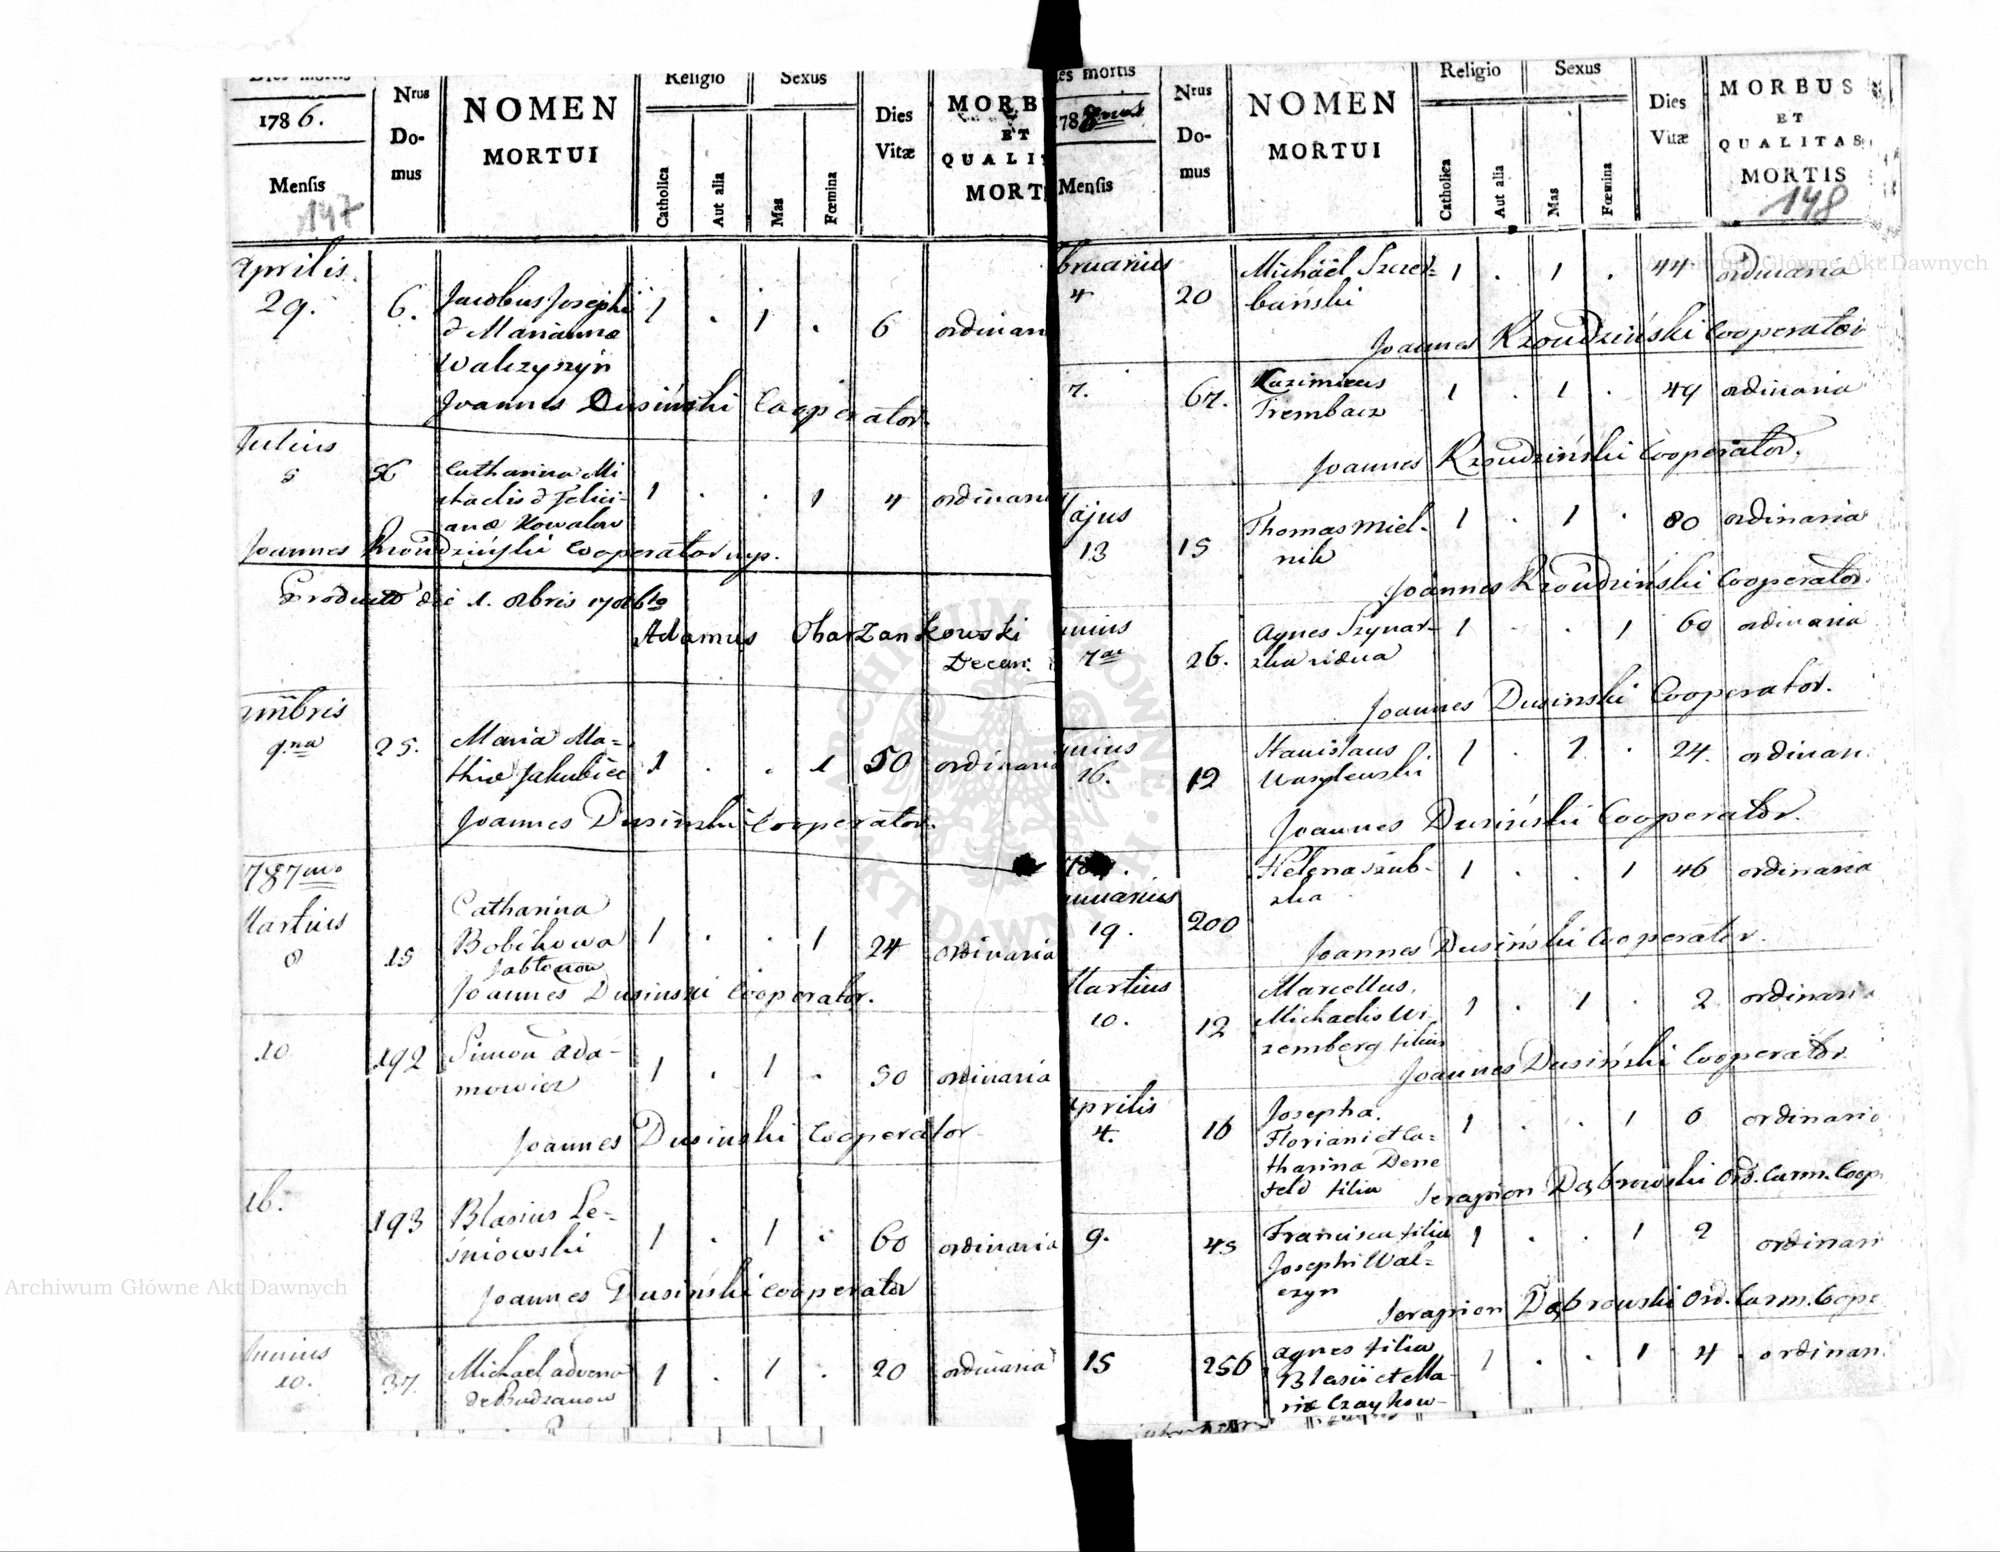 Dies mortis
1786.
Mensis
147
Nrus
Do-
mus
NOMEN
MORTUI
Religio
Catholica
Aut alia
Sexus
Mas
Fœmina
Dies
Vitæ
MORB
ET
QUALI
MORT
Aprilis
29.
6.
Jacobus Josephi
& Marianna
Walczyszyn
1 . 1 . 6 ordinari
Joannes Dusiński Cooperator.
Julius
5
56
Catharina Mi
chaelis & Felici-
anæ Kowalow
1 . . 1 4 ordinari
Joannes Rzoudziński Cooperator mp.
die 1. 8bris
Adamus Obarzankowski
Decan.
mbris
9.na
25.
Maria Ma-
thiæ Jakubiec
1 . . 1 50 ordinaria
Joannes Dusiński Cooperator.
787mo
Martius
8
15
Catharina
Bobikowa
1 . . 1 24 ordinaria
Joannes Dusinski Cooperator.
10
192
Simon Ada-
mowicz
1 . 1 . 50 ordinaria
Joannes Dusinski Cooperator
16.
193
Blasius Le-
śniowski
1 . 1 . 60 ordinaria
Joannes Dusiński Cooperator
Junius
10.
37.
Michael advena
de Budzanow
1 . 1 . 20 ordinaria
es mortis
178
Mensis
Nrus
Do-
mus
NOMEN
MORTUI
Religio
Catholica
Aut alia
Sexus
Mas
Fœmina
Dies
Vitæ
MORBUS
ET
QUALITAS
MORTIS
148
bruarius
4
20
Michaël Szczer-
bański
1 . 1 . 44 ordinaria
Joannes Rzoudziński Cooperator
7.
67.
Kazimirus
Trembacz
1 . 1 . 49 ordinaria
Joannes Rzoudziński Cooperator.
Majus
13
15
Thomas Miel-
nik
1 . 1 . 80 ordinaria
Joannes Rzoudziński Cooperator
unius
7ae
26.
Agnes Szynar-
ska vidua
1 . . 1 60 ordinaria
Joannes Dusinski Cooperator.
unius
16.
12
Stanislaus
Wasylewski
1 . 1 . 24. ordinari
Joannes Dusiński Cooperator.
nuarius
19.
200
Helena Szub-
ska
1 . . 1 46 ordinaria
Joannes Dusiński Cooperator.
Martius
10.
12
Marcellus,
Michaelis Wi-
zemberg filius
1 . 1 . 2 ordinari
Joannes Dusiński Cooperator
Aprilis
4.
16
Josepha.
Floriani et Ca-
tharina Dene
feld filia
1 . . 1 6 ordinario
Serapion Dąbrowski Ord. Carm. Coop.
9.
45
Francisca filia
Josephi Wal-
czyn
1 . . 1 2 ordinari
Serapion Dąbrowski Ord. Carm. Coope
15
256
Agnes filia
Blasii et Ma-
riæ Czaykow-
1 . . 1 4 . ordinari
Archiwum Główne Akt Dawnych
Archiwum Główne Akt Dawnych
ARCHIWUM GŁÓWNE AKT DAWNYCH